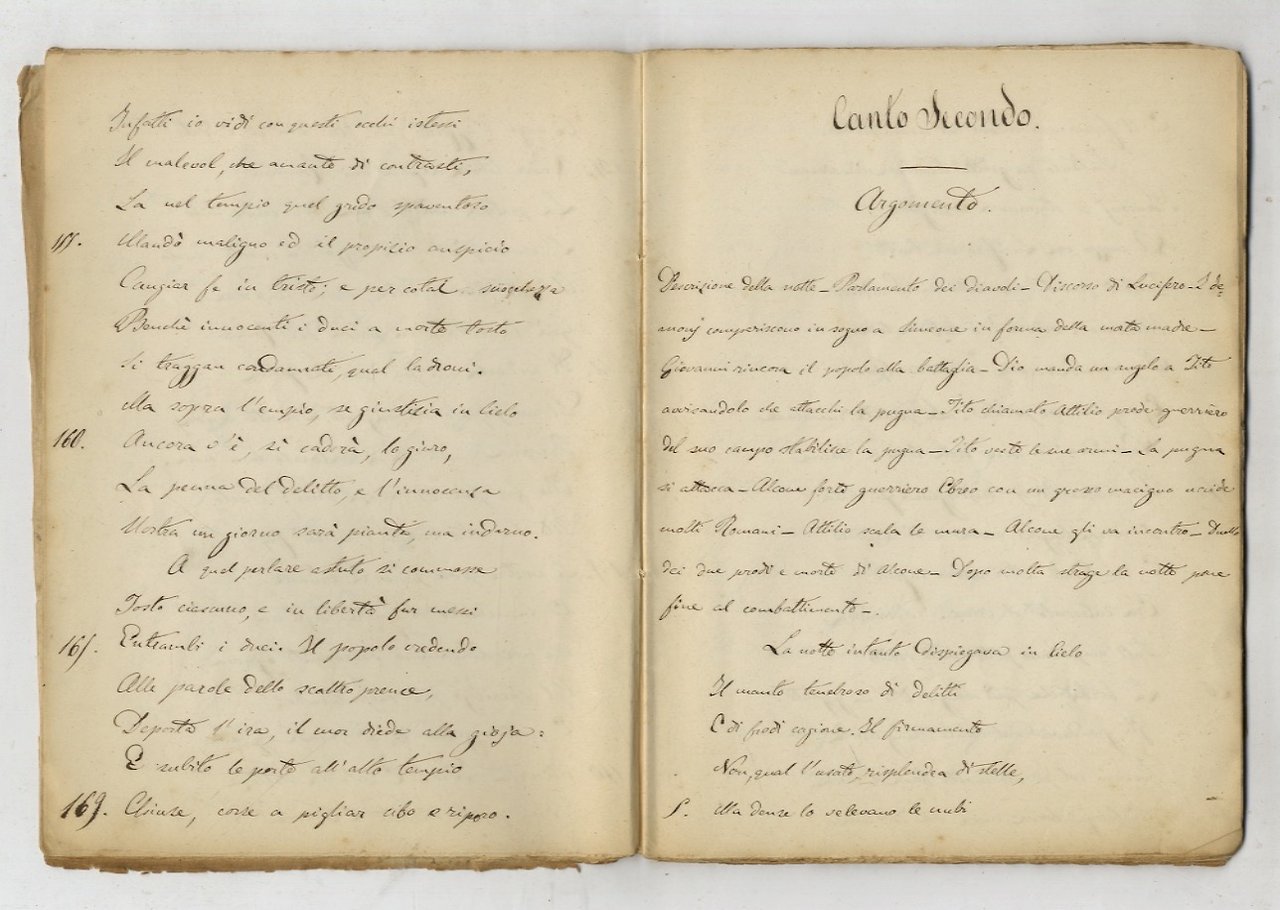 Infatti io vidi con questi occhi istessi
Il malevol, che amante di contrasti,
La nel tempio quel grido spaventoso
155. Mandò maligno ed il propizio auspicio
Cangiar fe in tristo; e per cotal
Benchè innocenti i duci a morte tosto
Si traggan condannati, qual ladroni.
Ma sopra l'empio, se giustizia in Cielo
160. Ancora v'è, si cadrà, lo giuro,
La penna del delitto, e l'innocenza
Nostra un giorno sarà pianta, ma indarno.
A quel parlare astuto si commosse
Tosto ciascuno, e in libertà fur messi
165. Entrambi i duci. Il popolo credendo
Alle parole dello scaltro prence,
Deposta l'ira, il cuor diede alla gioja:
E subito le porte all'alto tempio
169. Chiuse, corse a pigliar cibo e riposo.
Canto Secondo.
Argomento.
Descrizione della notte_ Parlamento dei diavoli_ Discorso di Lucifero_ I de=
monj compariscono in sogno a Simeone in forma della morta madre_
Giovanni rincora il popolo alla battaglia_ Dio manda un angelo a Tito
avvisandolo che attacchi la pugna_ Tito chiamato Attilio prode guerriero
del suo campo stabilisce la pugna_ Tito veste le sue armi_ La pugna
si attacca_ Alcone forte guerriero Ebreo con un grosso macigno uccide
molti Romani_ Attilio scala le mura_ Alcone gli va incontro_ Duello
dei due prodi e morte di Alcone_ Dopo molta strage la notte pone
fine al combattimento_.
La notte intanto dispiegava in Cielo
Il manto tenebroso di delitti
E di frodi cagione. Il firmamento
Non, qual l'usato, risplendea di stelle,
5. Ma dense lo velavano le nubi